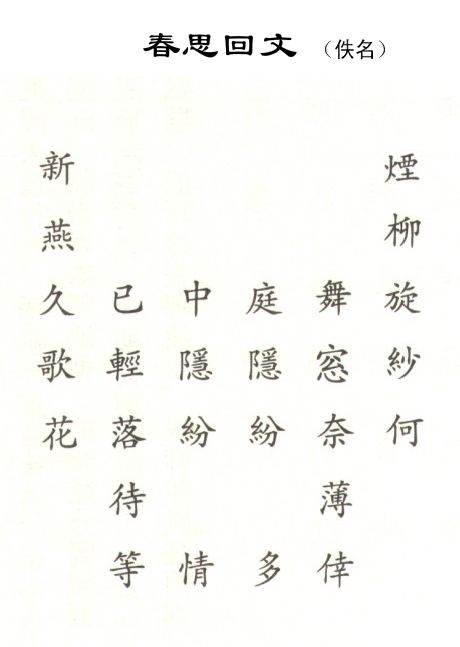 春思回文 （佚名）
煙柳旋紗何
舞窓奈薄倖
庭隱紛多
中隱紛情
已輕落待等
新燕久歌花